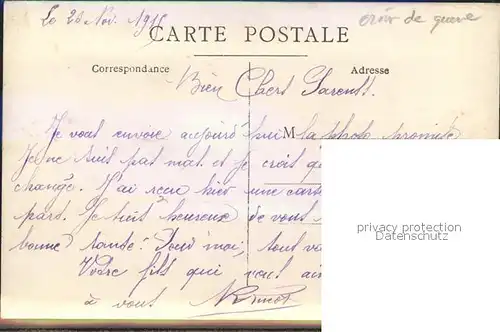 Le 26 Nov. 1915
croix de guerre
CARTE POSTALE
Correspondance
Adresse
Bien Chers Parents.
Je vous envoie aujourd'hui la photo promise
Je ne suis pas mal et je crois
change. J'ai reçu hier une carte
part. Je suis heureux de vous
bonne santé. Pour moi, tout va
Votre fils qui vous
à vous
M
privacy protection
Datenschutz